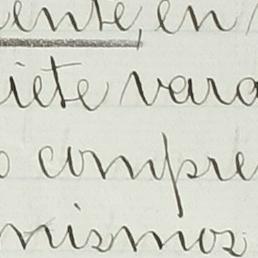 ente, en
iete vara
o compre
mismos